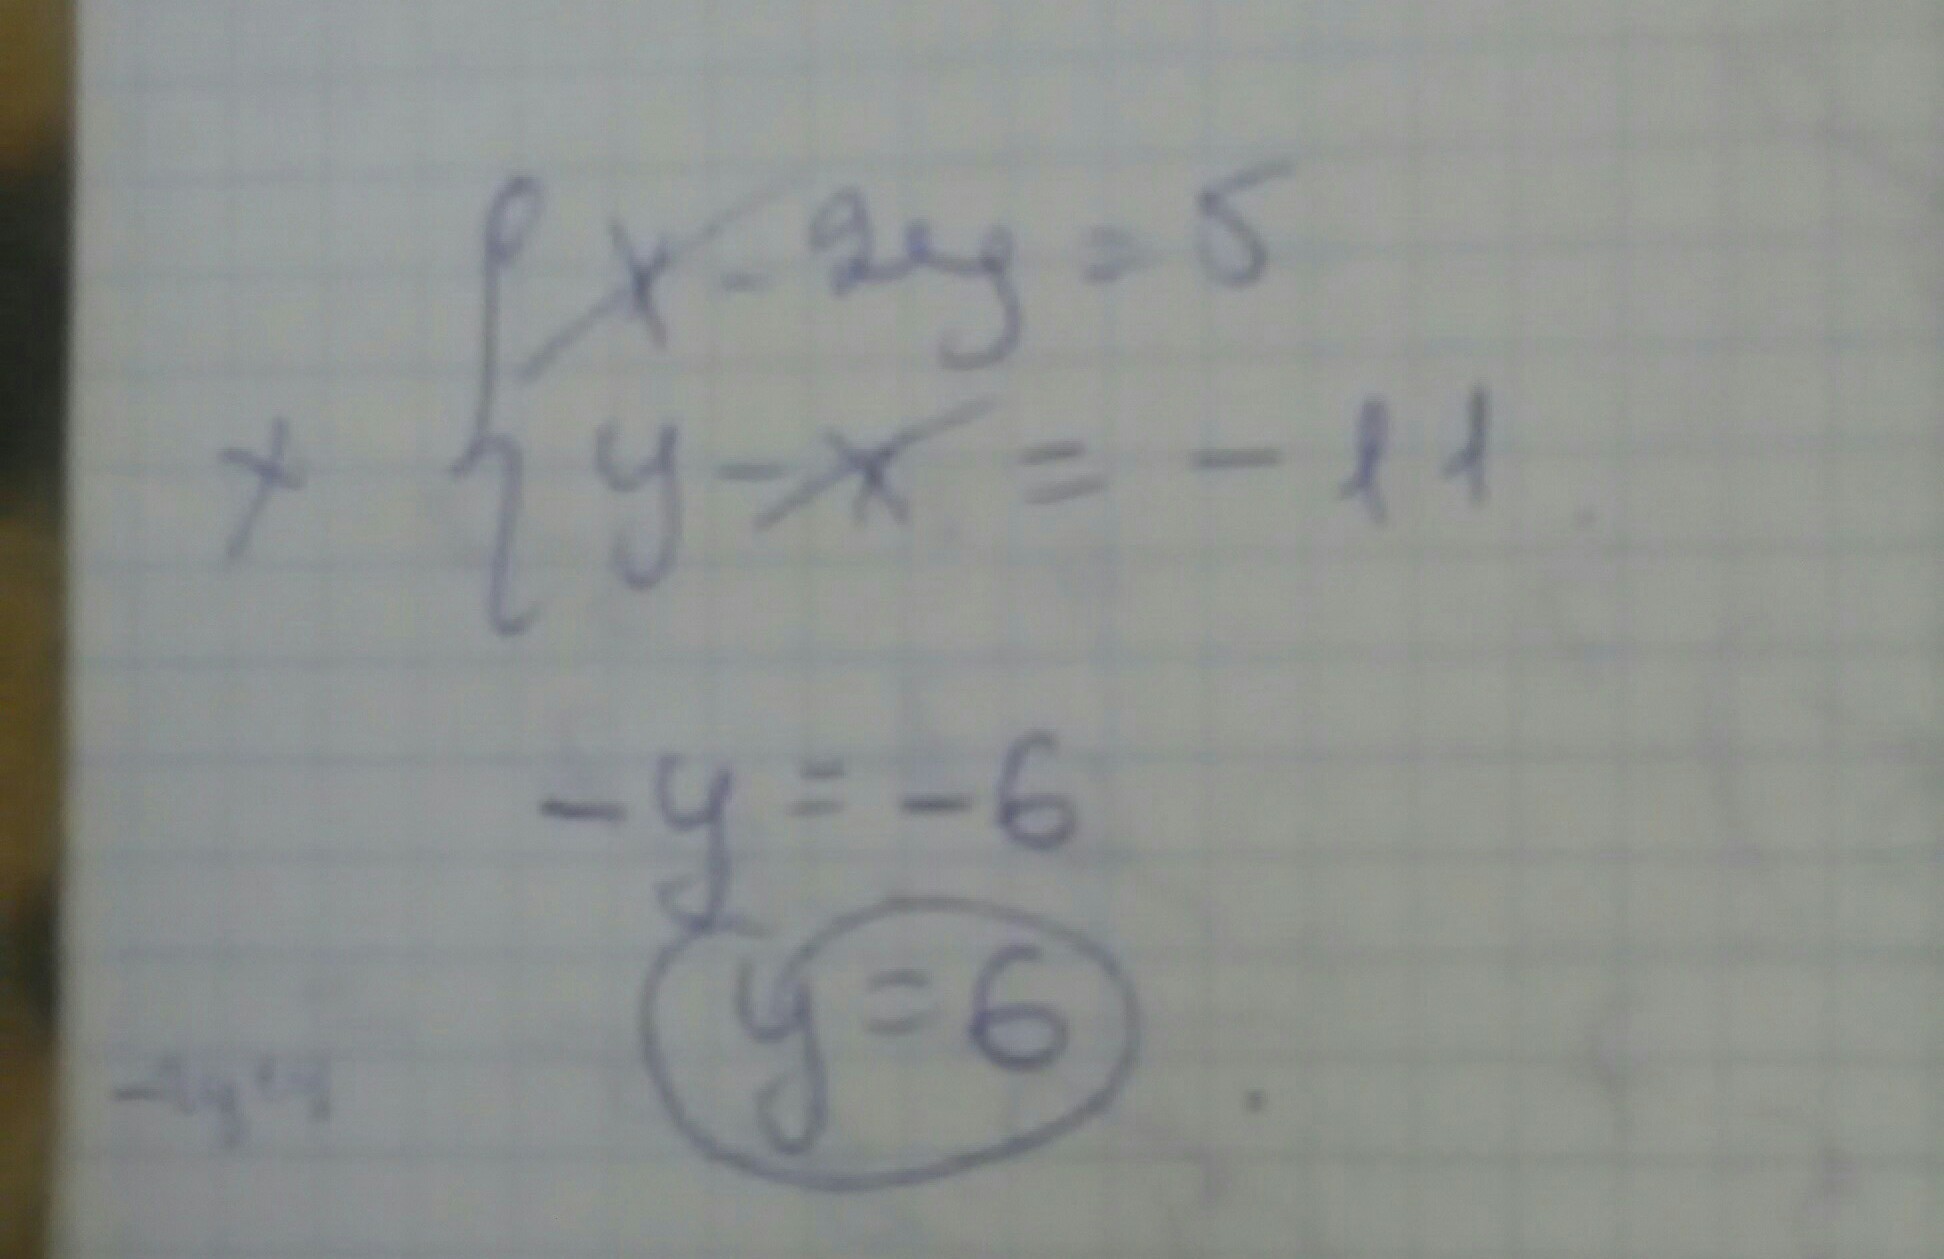 { x - 2y = 5
+ { y - x = - 11
- y = - 6
y = 6
- 2y + y